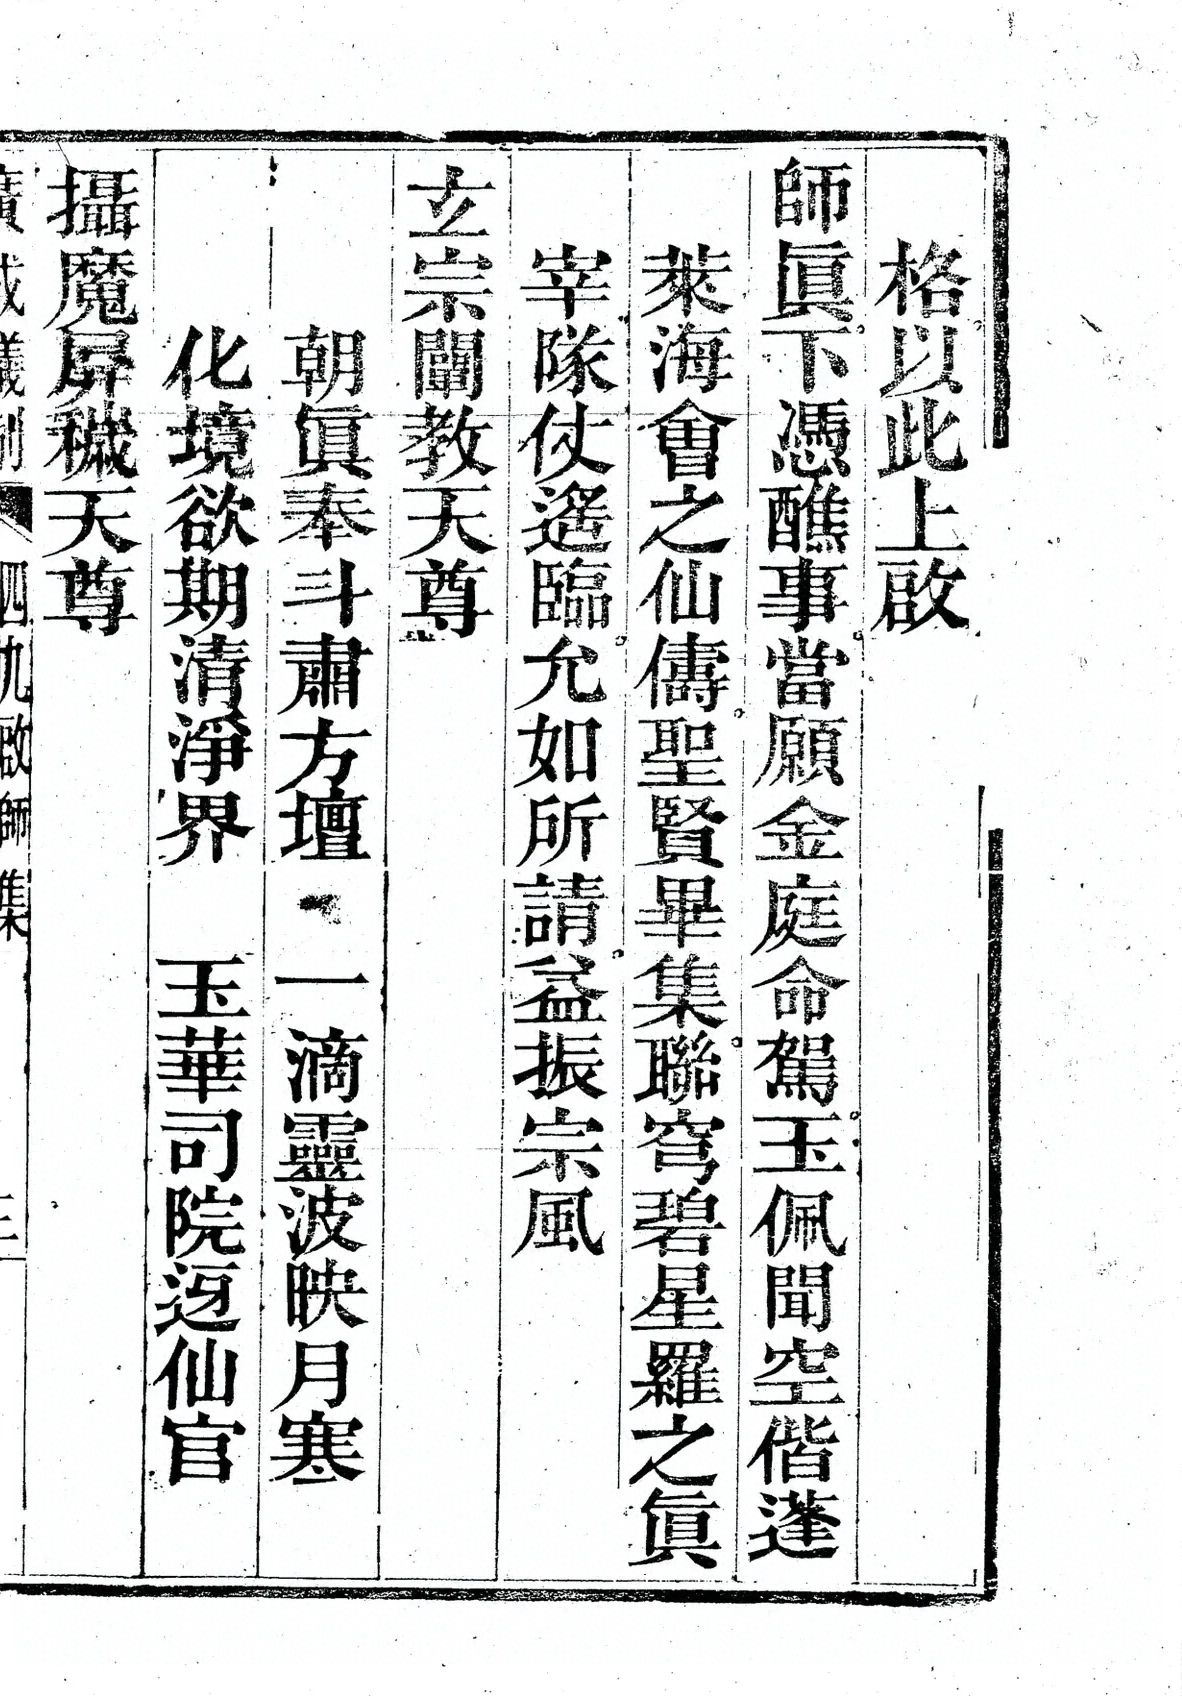 格以此上啟
師眞下憑醮事當願金庭命駕玉佩聞空偕蓬
萊海會之仙儔聖賢畢集聯穹碧星羅之眞
宰隊仗遙臨允如所請益振宗風
玄宗闡教天尊
朝眞奉斗肅方壇　一滴靈波映月寒
化境欲期清淨界　玉華司院迓仙官
攝魔屏穢天尊
廣成儀制　四九啟師集　三